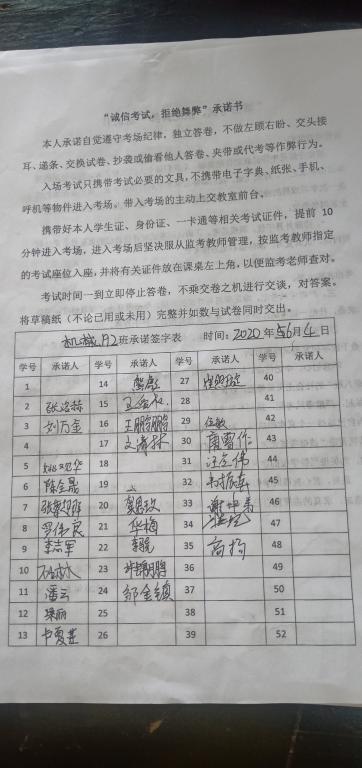 “诚信考试，拒绝舞弊”承诺书
本人承诺自觉遵守考场纪律，独立答卷，不做左顾右盼、交头接
耳、递条、交换试卷、抄袭或偷看他人答卷、夹带或代考等作弊行为。
入场考试只携带考试必要的文具，不携带电子字典、纸张、手机、
呼机等物件进入考场。带入考场的主动上交教室前台。
携带好本人学生证、身份证、一卡通等相关考试证件，提前 10
分钟进入考场，进入考场后坚决服从监考教师管理，按监考教师指定
的考试座位入座，并将有关证件放在课桌左上角，以便监考老师查对。
考试时间一到立即停止答卷，不乘交卷之机进行交谈，对答案。
将草稿纸（不论已用或未用）完整并如数与试卷同时交出。
机械192班承诺签字表 时间：2020年6月4日
学号 承诺人 学号 承诺人 学号 承诺人 学号 承诺人
1 14 27 40
2 15 28 41
3 刘万金 16 王鹏鹏 29 42
4 17 30 43
5 18 31 汪定伟 44
6 陈全晟 19 32 45
7 20 33 46
8 罗伟良 21 华梅 34 47
9 李志军 22 35 高扬 48
10 23 36 49
11 潘云 24 邹金镇 37 50
12 梁丽 25 38 51
13 26 39 52